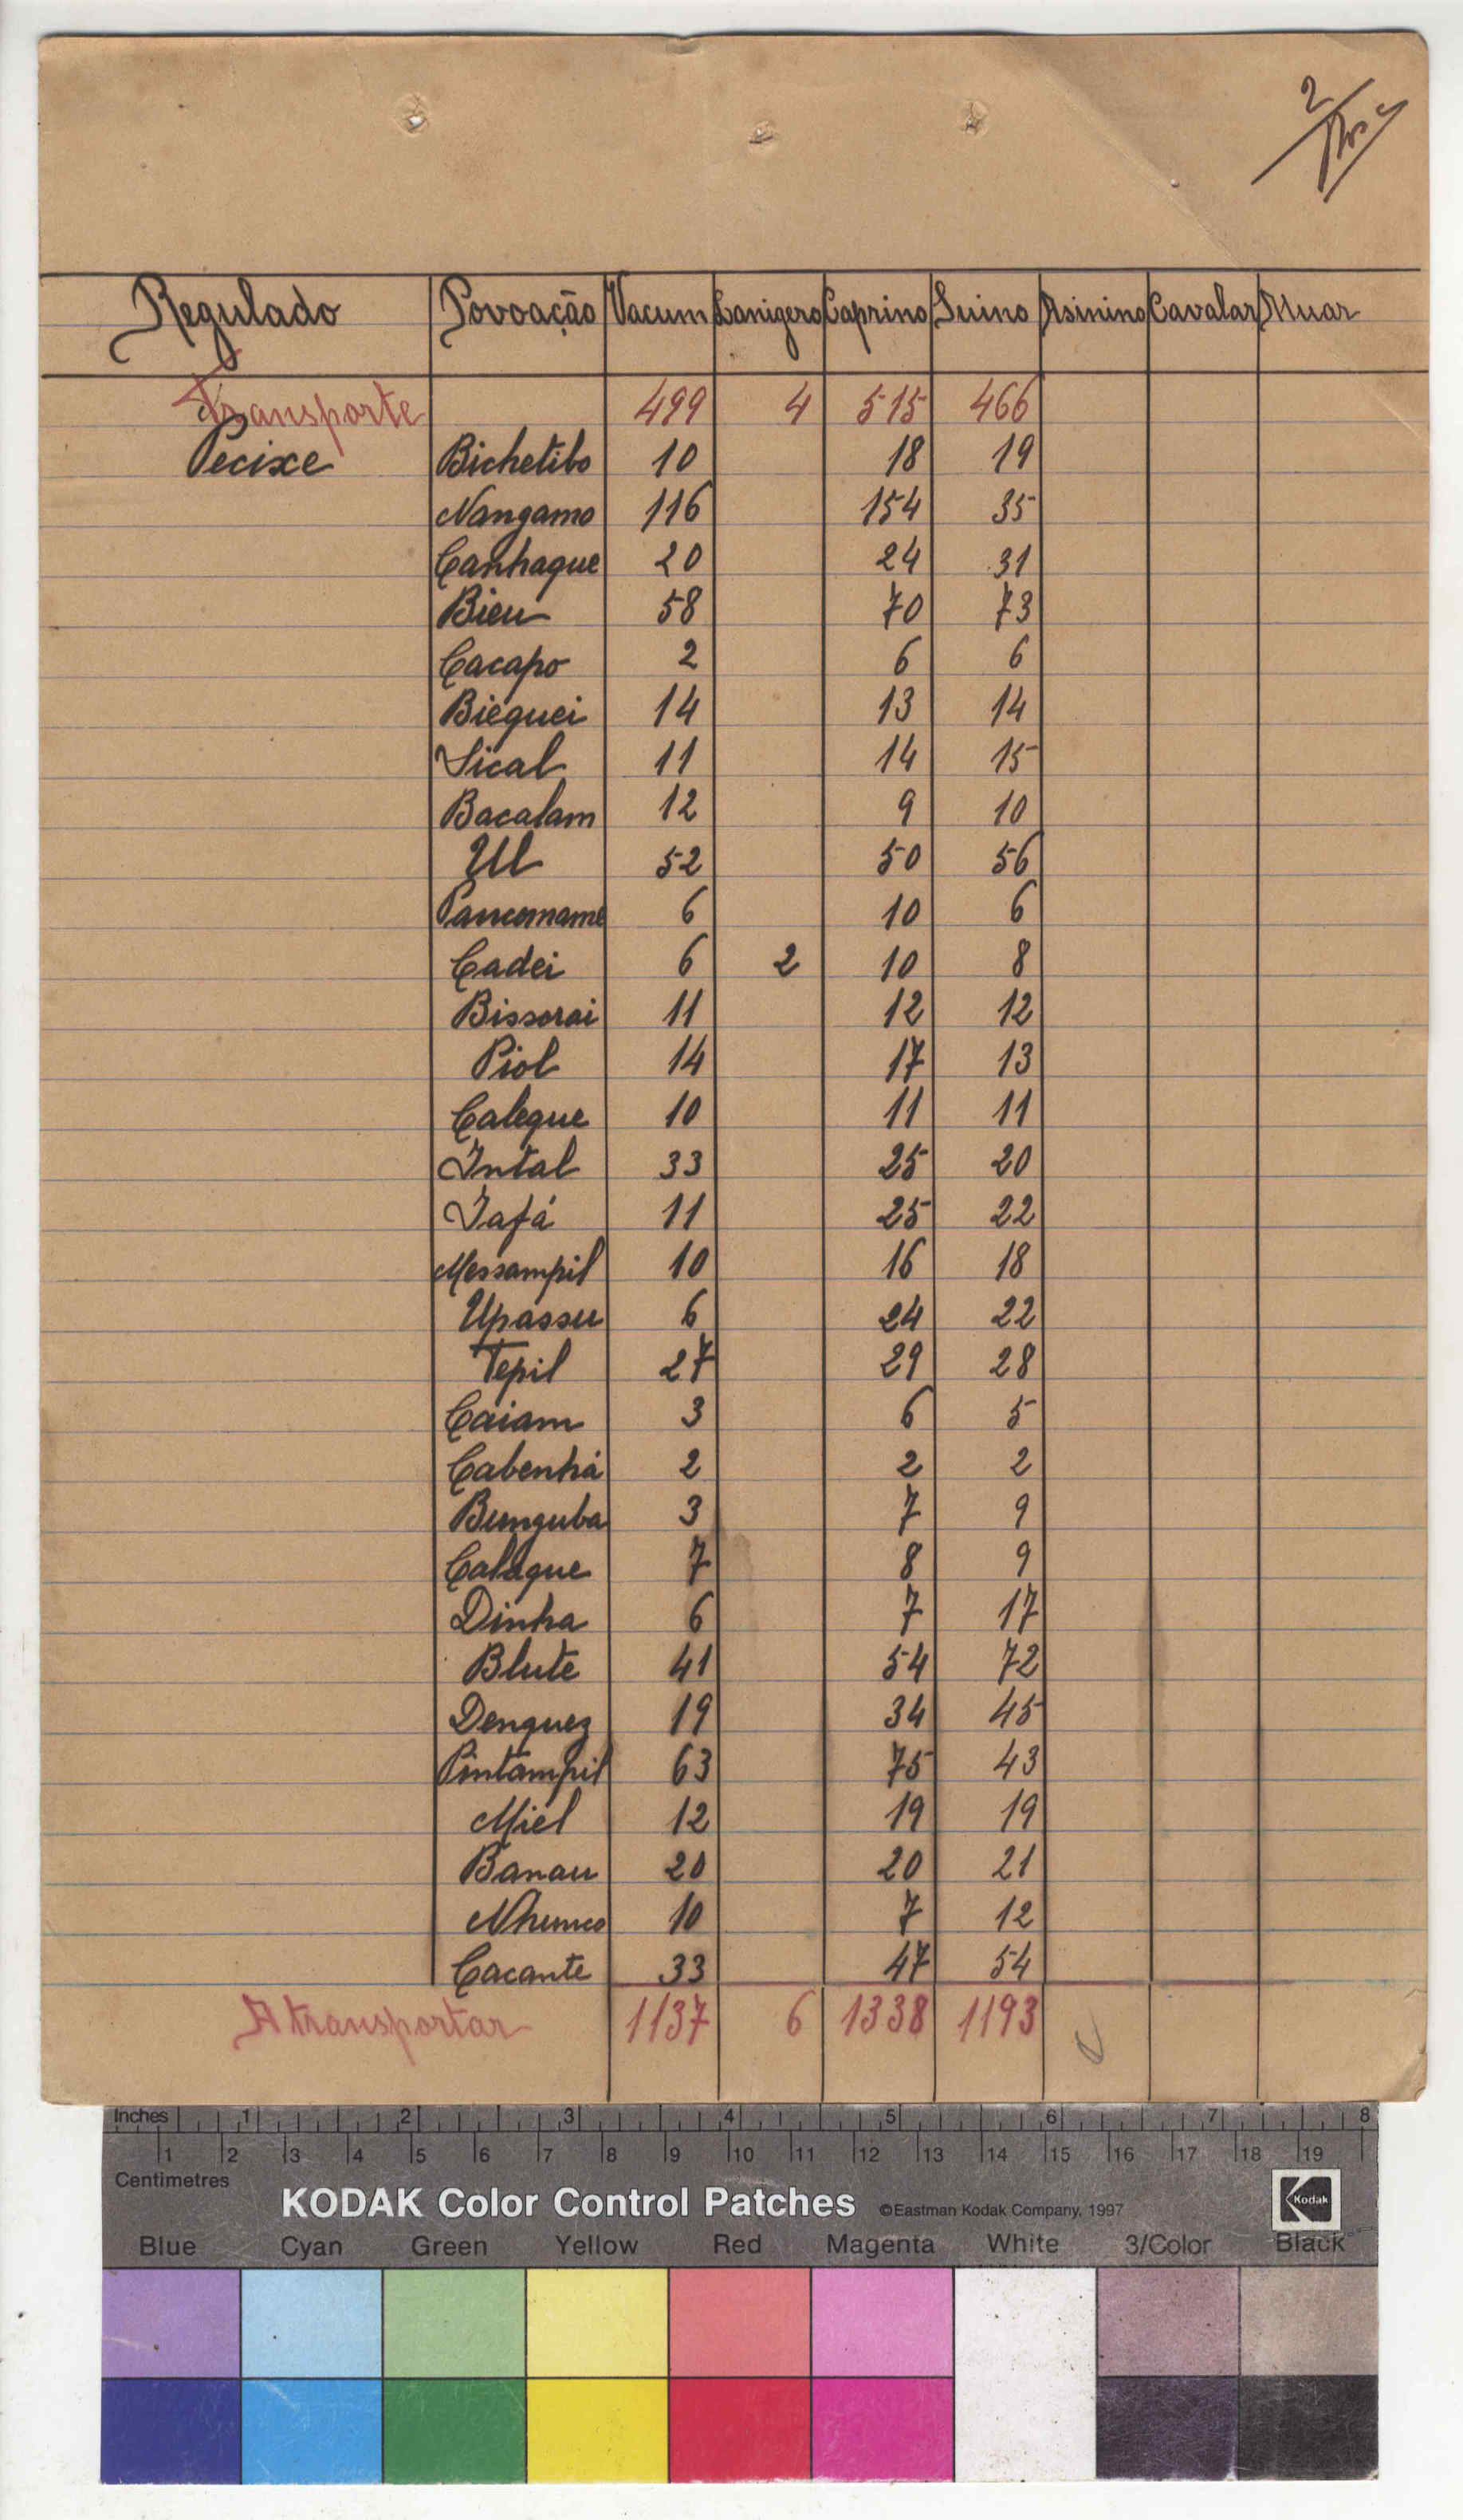 2
Regulado Povoação Vacum Lanigero Caprino Suino Asinino Cavalar Muar
Transporte 499 4 515 466
Pecixe Bichetibo 10 18 19
Nangamo 116 154 35
Canhaque 20 24 31
Bieu 58 70 73
Cacapo 2 6 6
Bieguei 14 13 14
Sical 11 14 15
Bacalam 12 9 10
Ul 52 50 56
6 10 6
Cadei 6 2 10 8
Bissorai 11 12 12
Piol 14 17 13
Caleque 10 11 11
Intal 33 25 20
Iafá 11 25 22
Messampil 10 16 18
Upassu 6 24 22
Tepil 27 29 28
Caiam 3 6 5
Cabenhá 2 2 2
Bunguba 3 7 9
Calaque 7 8 9
Dinha 6 7 17
Blute 41 54 72
Denguez 19 34 45
Pintampil 63 75 43
Miel 12 19 19
Banau 20 20 21
10 7 12
Cacante 33 47 54
A transportar 1137 6 1338 1193
Inches 1 2 3 4 5 6 7 8
1 2 3 4 5 6 7 8 9 10 11 12 13 14 15 16 17 18 19
Centimetres
KODAK Color Control Patches ©Eastman Kodak Company, 1997 Kodak
Blue Cyan Green Yellow Red Magenta White 3/Color Black